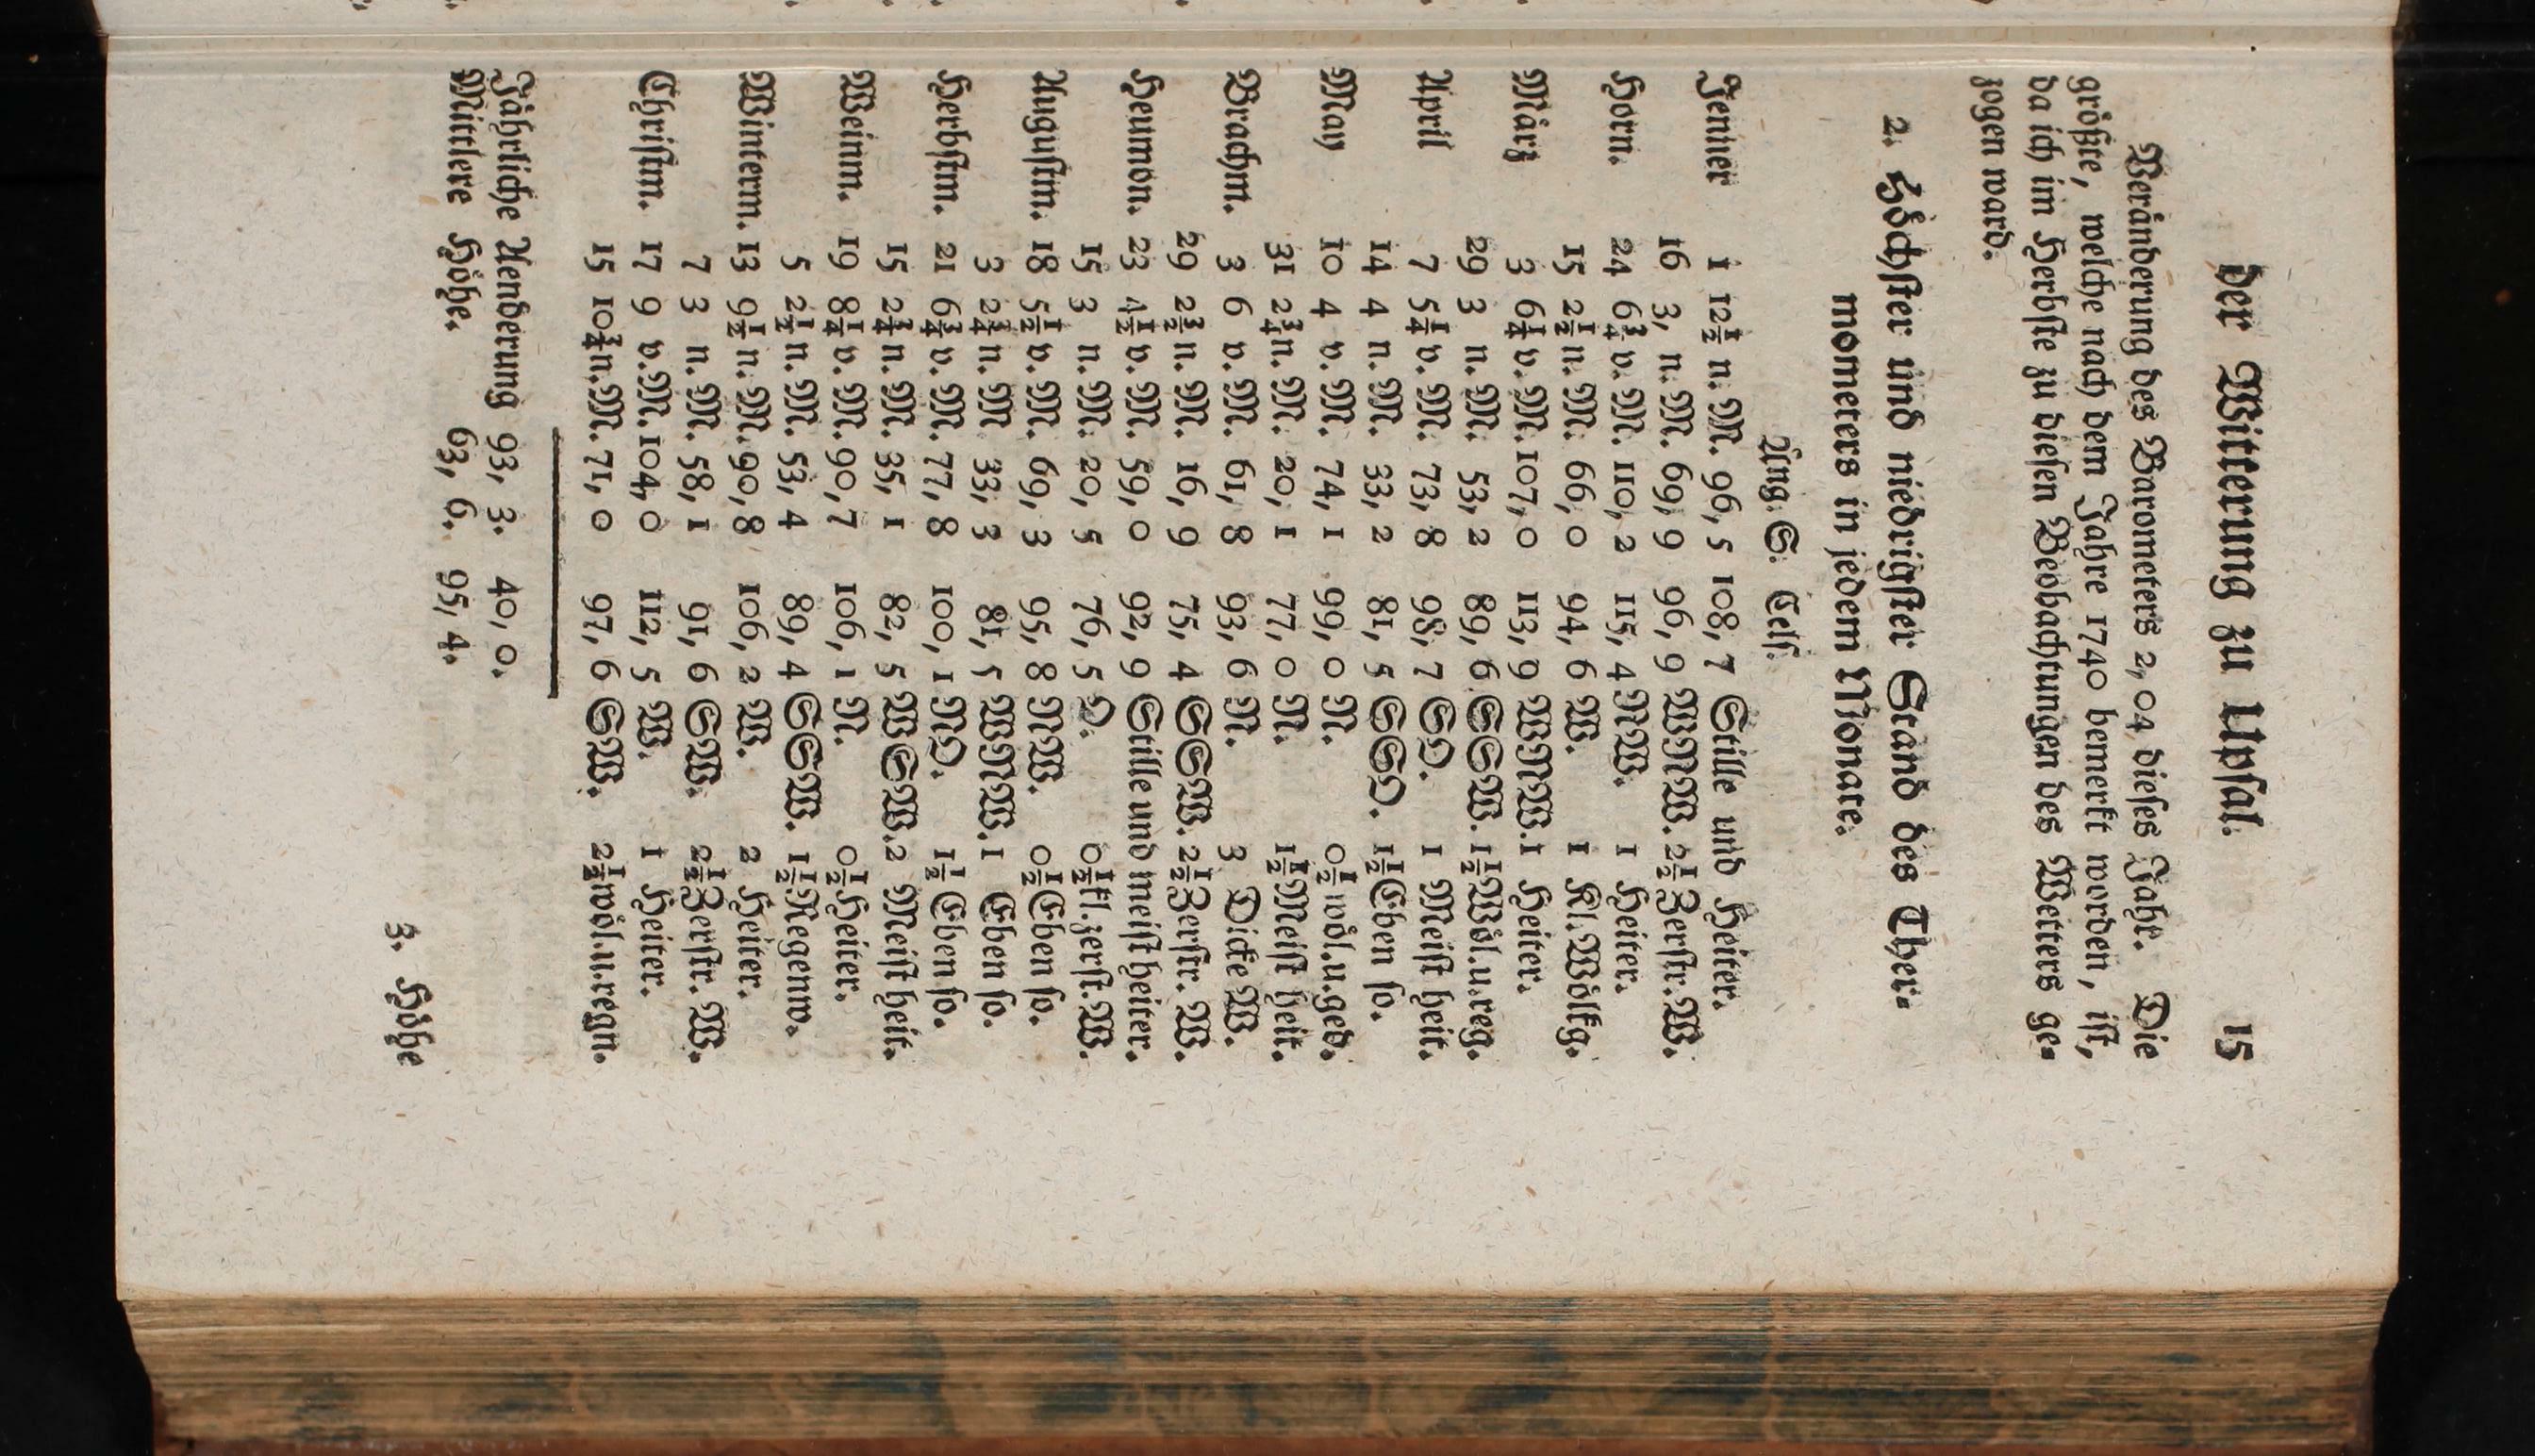 der Witterung zu Upsal. 15
Veränderung des Barometers 2, 04 dieses Jahr. Die
größte, welche nach dem Jahre 1740 bemerkt worden, ist,
da ich im Herbste zu diesen Beobachtungen des Wetters ge-
zogen ward.
2. Höchster und niedrigster Stand des Ther-
mometers in jedem Monate.
Ung. S. Cels.
Jenner 1 12½ n. M. 96, 5 108, 7 Stille und Heiter.
16 3, n. M. 69, 9 96, 9 WNW. 2½ Zerstr. W.
Horn. 24 6¾ v. M. 110, 2 115, 4 NW. 1 Heiter.
15 2½ n. M. 66, 0 94, 6 W. 1 Kl. Wölkg.
März 3 6¼ v. M. 107, 0 113, 9 WNW. 1 Heiter.
29 3 n. M. 53, 2 89, 6 SSW. 1½ Wöl. u. reg.
April 7 5¼ v. M. 73, 8 98, 7 SO. 1 Meist heit.
14 4 n. M. 33, 2 81, 5 SSO. 1½ Eben so.
May 10 4 v. M. 74, 1 99, 0 N. 0½ wöl. u. ged.
31 2¾ n. M. 20, 1 77, 0 N. 1½ Meist heit.
Brachm. 3 6 v. M. 61, 8 93, 6 N. 3 Dicke W.
29 2½ n. M. 16, 9 75, 4 SSW. 2½ Zerstr. W.
Heumon. 23 4½ v. M. 59, 0 92, 9 Stille und meist heiter.
15 3 n. M. 20, 5 76, 5 O. 0½ kl. zerst. W.
Augustm. 18 5½ v. M. 69, 3 95, 8 NW. 0½ Eben so.
3 2¾ n. M 33, 3 81, 5 WNW. 1 Eben so.
Herbstm. 21 6¾ v. M. 77, 8 100, 1 NO. 1½ Eben so.
15 2¾ n. M. 35, 1 82, 5 WSW. 2 Meist heit.
Weinm. 19 8¼ v. M. 90, 7 106, 1 N. 0½ Heiter.
5 2½ n. M. 53, 4 89, 4 SSW. 1½ Regenw.
Winterm. 13 9½ n. M. 90, 8 106, 2 W. 2 Heiter.
7 3 n. M. 58, 1 91, 6 SW. 2½ Zerstr. W.
Christm. 17 9 v. M. 104, 0 112, 5 W. 1 Heiter.
15 10¾ n. M. 71, 0 97, 6 SW. 2½ wöl. u. regn.
Jährliche Aenderung 93, 3. 40, 0.
Mittlere Höhe. 63, 6. 95, 4.
3. Höhe